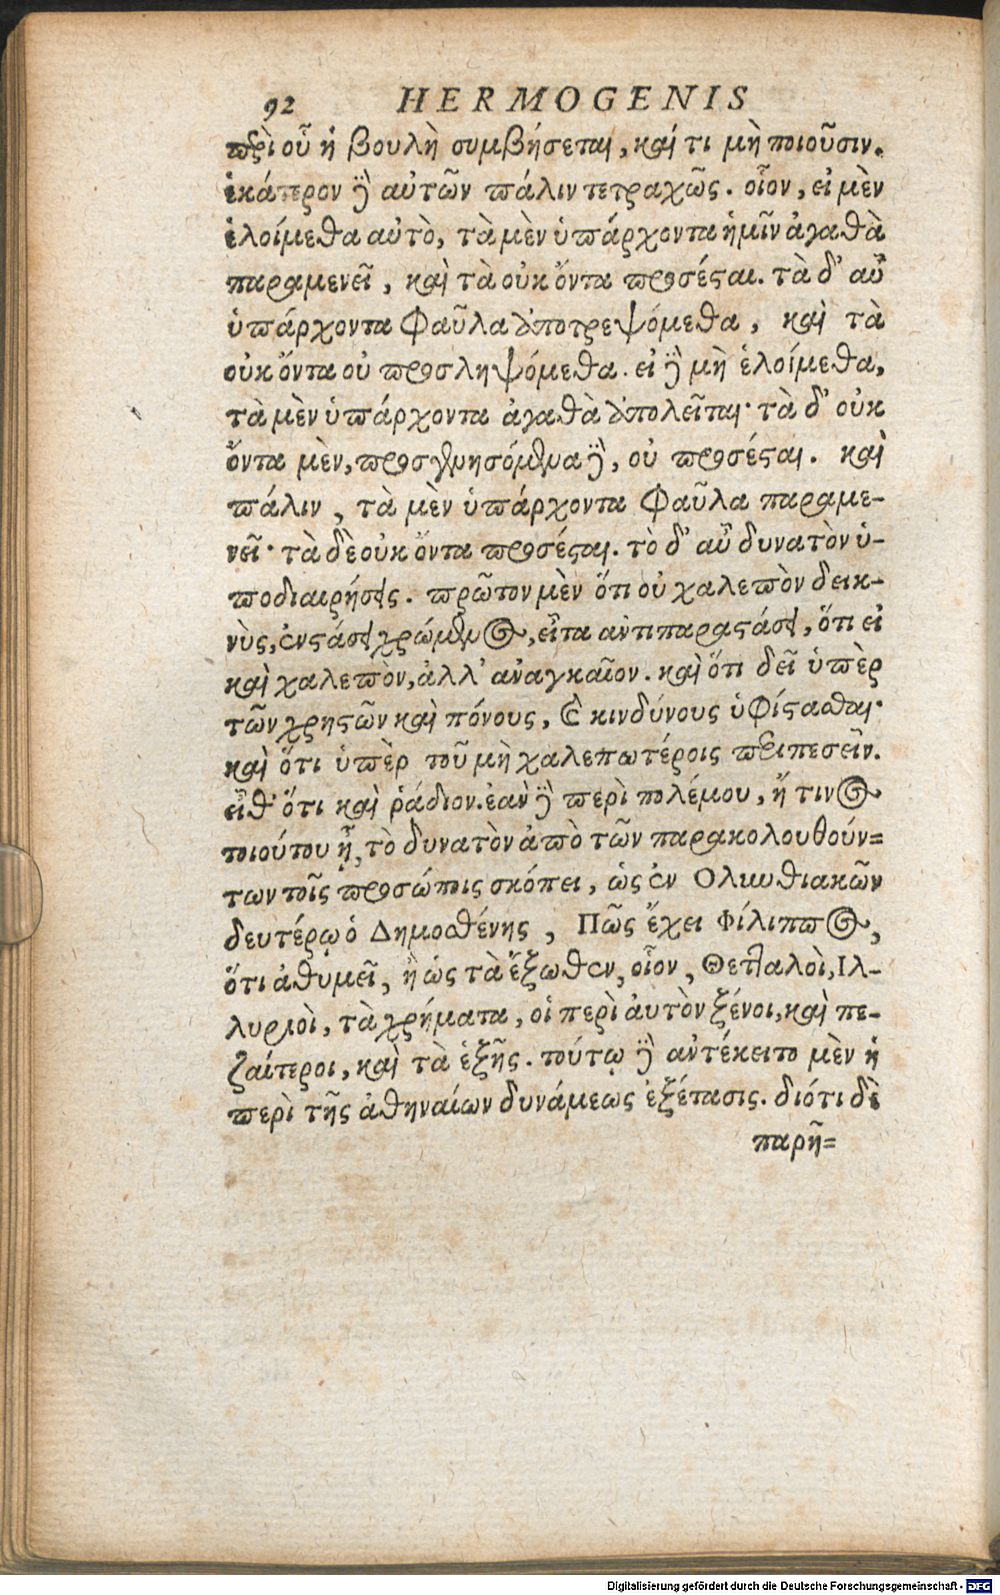 92 HERMOGENIS
περὶ οὗ ἡ βουλὴ συμβήσεται, καί τι μὴ ποιοῦσιν.
ἑκάτερον δὲ αὐτῶν πάλιν τετραχῶς. οἷον, εἰ μὲν
ἑλοίμεθα αὐτὸ, τὰ μὲν ὑπάρχοντα ἡμῖν ἀγαθὰ
παραμενεῖ, καὶ τὰ οὐκ ὄντα προσέσται. τὰ δ' αὖ
ὑπάρχοντα φαῦλα ἀποτρεψόμεθα, καὶ τὰ
οὐκ ὄντα οὐ προσληψόμεθα. εἰ δὲ μὴ ἑλοίμεθα,
τὰ μὲν ὑπάρχοντα ἀγαθὰ ἀπολεῖται· τὰ δ' οὐκ
ὄντα μὲν, προσγενησόμενα δὲ, οὐ προσέσται. καὶ
πάλιν, τὰ μὲν ὑπάρχοντα φαῦλα παραμε-
νεῖ· τὰ δὲ οὐκ ὄντα προσέσται. τὸ δ' αὖ δυνατὸν ὑ-
ποδιαιρήσεις. πρῶτον μὲν ὅτι οὐ χαλεπὸν δεικ-
νὺς, ἐνστάσει χρώμενος, εἶτα ἀντιπαραστάσει, ὅτι εἰ
καὶ χαλεπὸν, ἀλλ' ἀναγκαῖον. καὶ ὅτι δεῖ ὑπὲρ
τῶν χρηστῶν καὶ πόνους, καὶ κινδύνους ὑφίστασθαι·
καὶ ὅτι ὑπὲρ τοῦ μὴ χαλεπωτέροις περιπεσεῖν.
εἶθ' ὅτι καὶ ῥᾴδιον. ἐὰν δὲ περὶ πολέμου, ἤ τινος
τοιούτου ᾖ, τὸ δυνατὸν ἀπὸ τῶν παρακολουθούν=
των τοῖς προσώποις σκόπει, ὡς ἐν Ολυνθιακῶν
δευτέρῳ ὁ Δημοσθένης, Πῶς ἔχει Φίλιππος,
ὅτι ἀθυμεῖ, ἢ ὡς τὰ ἔξωθεν, οἷον, Θετταλοὶ, Ιλ-
λυριοὶ, τὰ χρήματα, οἱ περὶ αὐτὸν ξένοι, καὶ πε-
ζαίτεροι, καὶ τὰ ἑξῆς. τούτῳ δὲ ἀντέκειτο μὲν ἡ
περὶ τῆς ἀθηναίων δυνάμεως ἐξέτασις. διότι δὲ
παρῆ=
Digitalisierung gefördert durch die Deutsche Forschungsgemeinschaft - DFG